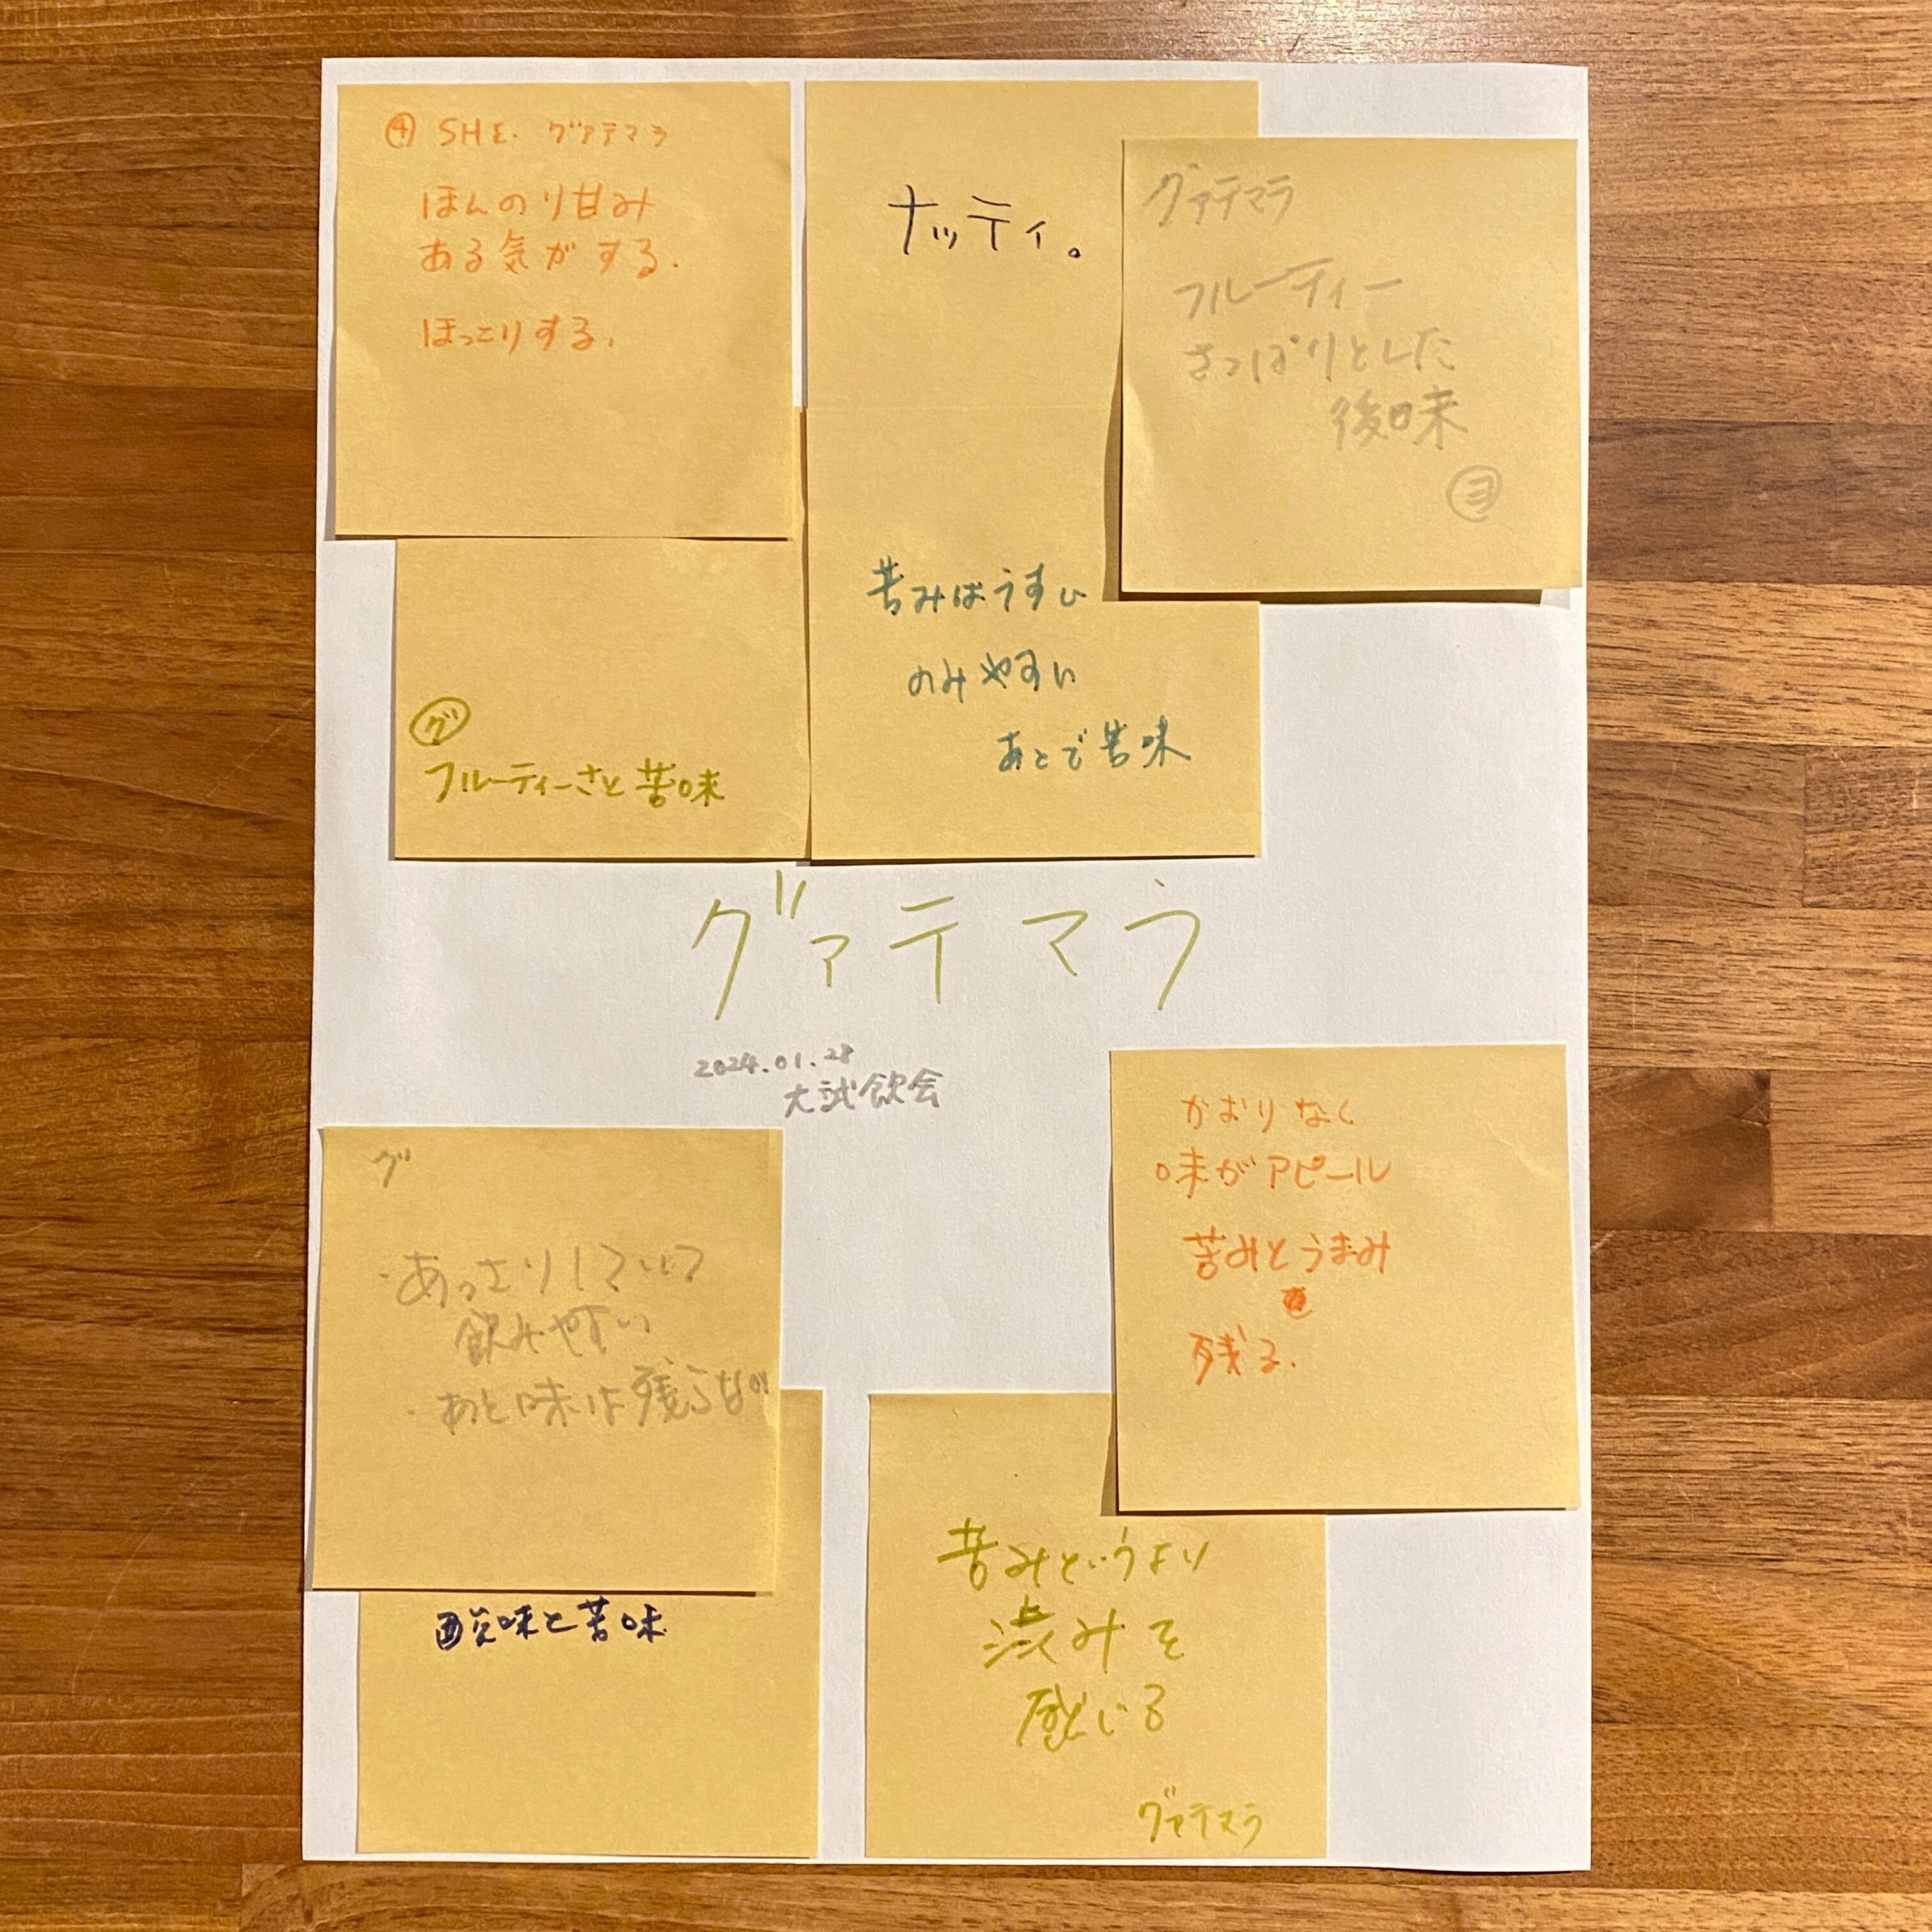 ④ SHE. グァテマラ
ほんのり甘み
ある気がする.
ほっこりする.
ナッティ。
グァテマラ
フルーティー
さっぱりとした
後味
ヨ
グ
フルーティーさと苦味
苦みはうすい
のみやすい
あとで苦味
グァテマラ
2024.01.28
大試飲会
グ
・あっさりしていて
飲みやすい
・あと味は残らない
酸味と苦味
かおりなく
味がアピール
苦みとうまみ
残る.
苦みというより
渋みを
感じる
グァテマラ